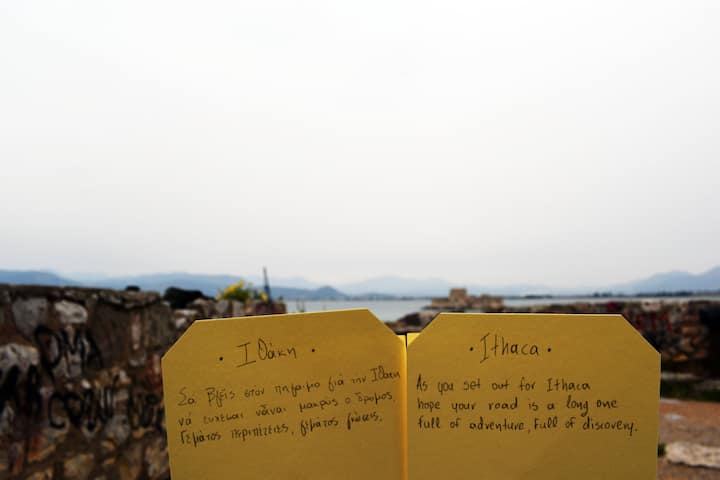 · Ιθάκη ·
Σα βγεις στον πηγαιμο γιά την Ιθάκη
νά ευχεσαι νἆναι μακρυς ο δρομος,
Γεμάτος περιπέτειες, γεμάτος γνώσεις.
· Ithaca ·
As you set out for Ithaca
hope your road is a long one
full of adventure, full of discovery.